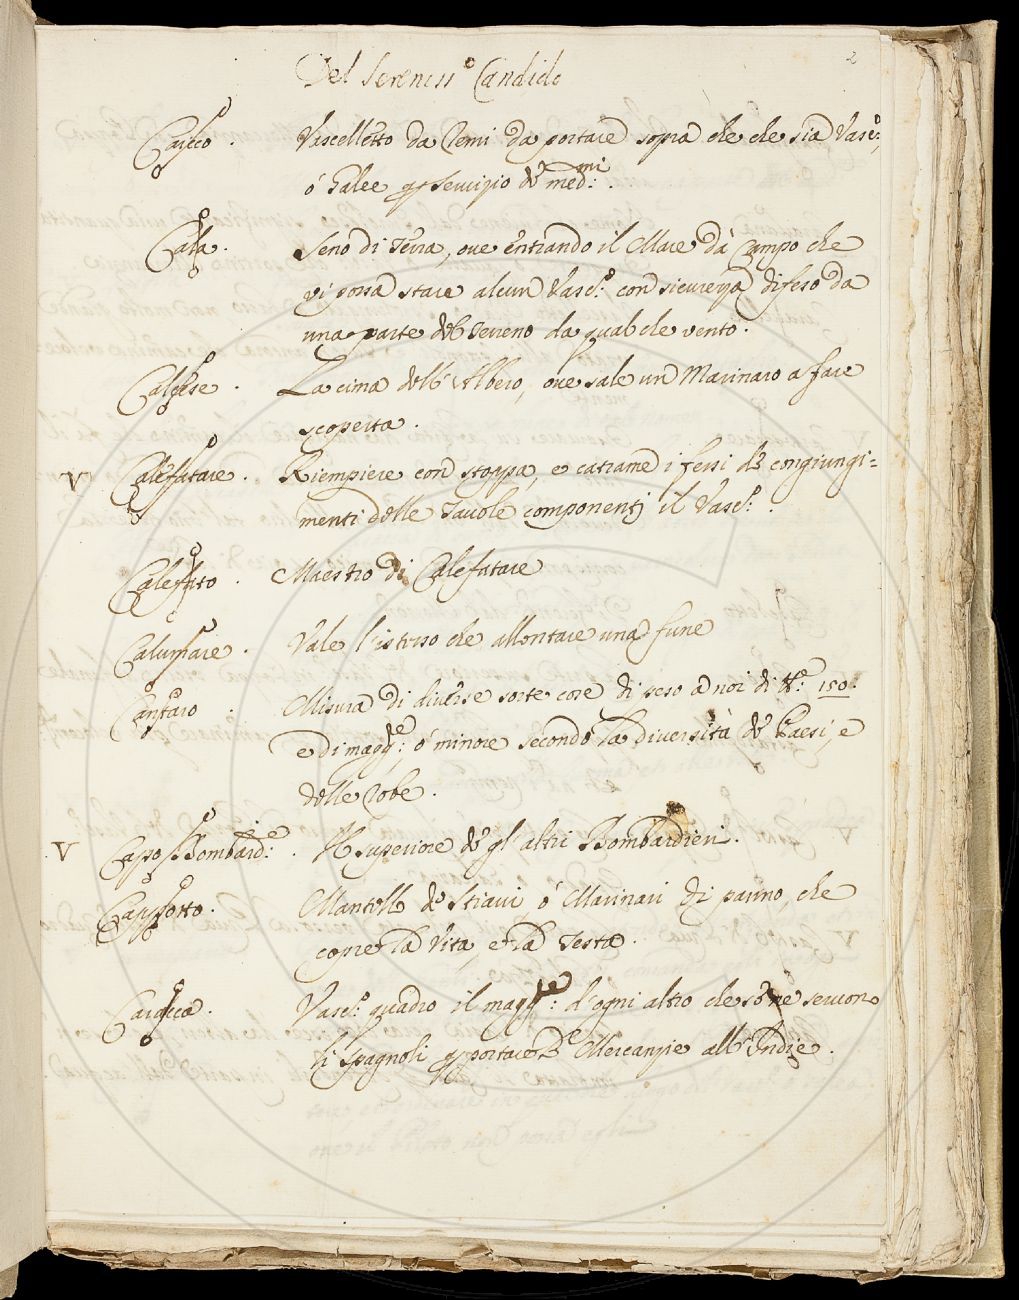 2
Del Sereniss.o Candido
Caicco. Vascelletto da Remi da portare sopra che che sia Vasc.o,
ó Galee p servizio de med:mi.
Cala. Seno di Terra, ove entrando il Mare dà Campo che
vi possa stare alcun Vasc.o con sicurezza difeso da
una parte del Terreno da qualche vento.
Calcese. La cima dell'Albero, ove sale un Marinaro a fare
scoperta.
V Calefatare. Riempiere con stoppa, e catrame i fessi de congiungi=
menti delle Tavole componenti il Vasc.o.
Calefato. Maestro di Calefatare
Calumare. Vale l'istesso che allentare una fune
Cantaro. Misura di diverse sorte cose di peso a noi di ℔: 150.
e di magg:re, ó minore secondo la diversità de Paesi, e
delle robe.
V Cappo Bombard:re. Il superiore de gl'altri Bombardieri.
Cappotto. Mantello de Stiavi, ó Marinari di panno, che
copre la Vita, e la Testa.
Caracca. Vasc.o quadro il magg:re d'ogni altro che se ne servono
li Spagnoli p portare le Mercanzie all'Indie.